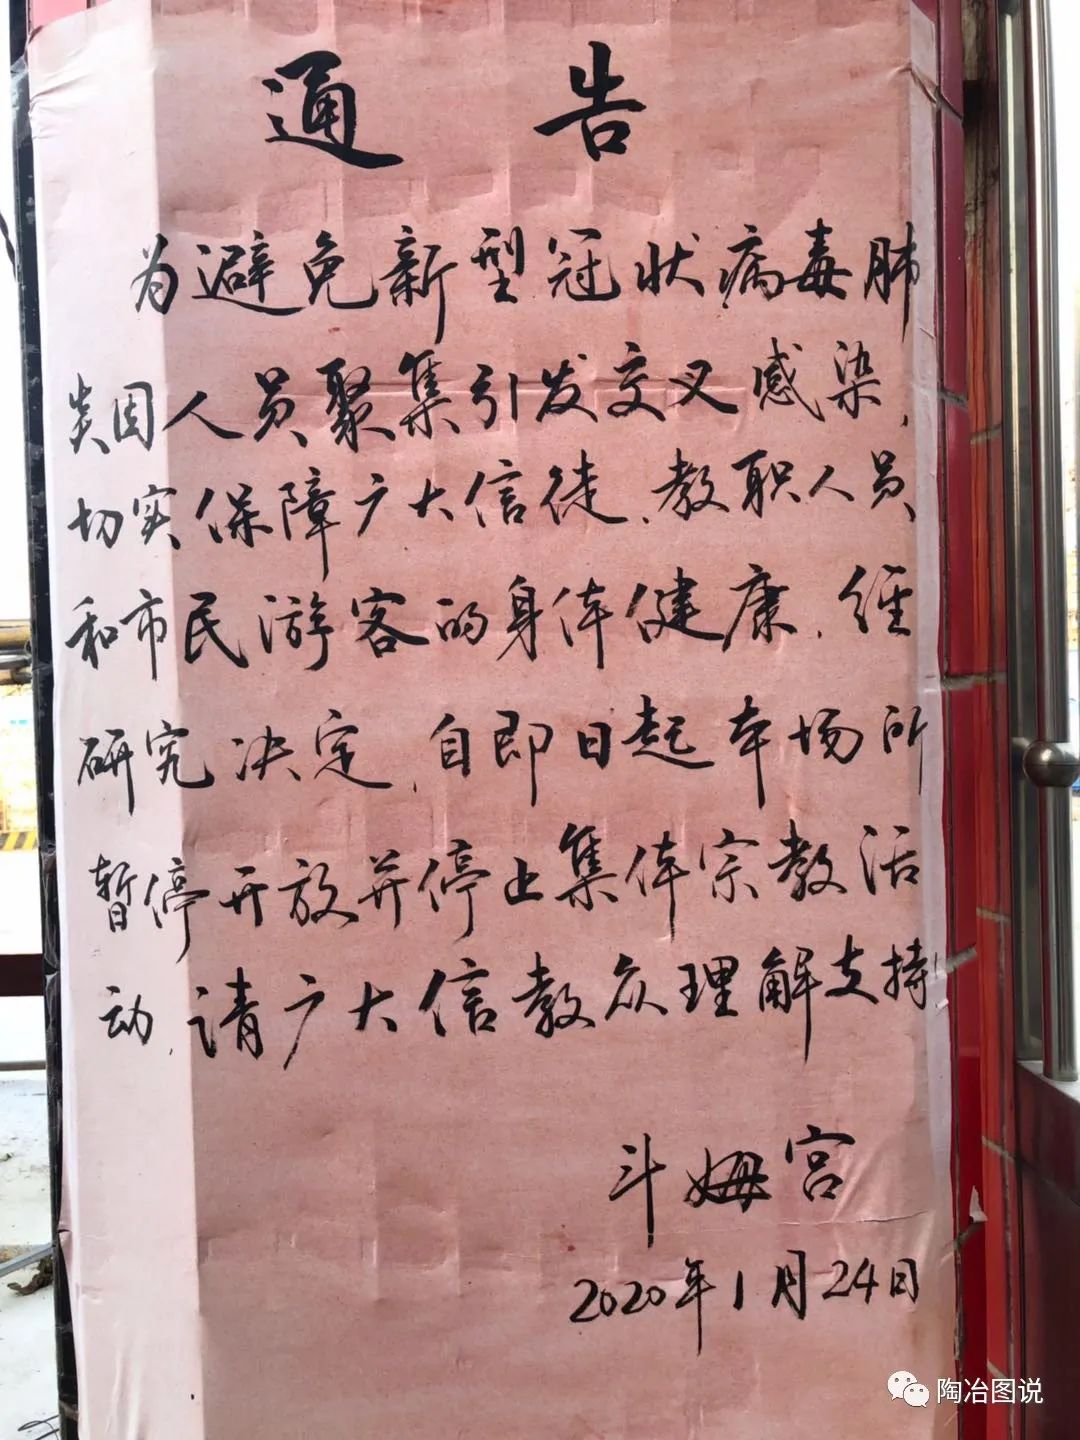 通告
为避免新型冠状病毒肺
炎因人员聚集引发交叉感染,
切实保障广大信徒、教职人员
和市民游客的身体健康,经
研究决定,自即日起本场所
暂停开放并停止集体宗教活
动,请广大信教众理解支持!
斗姆宫
2020年1月24日
陶冶图说